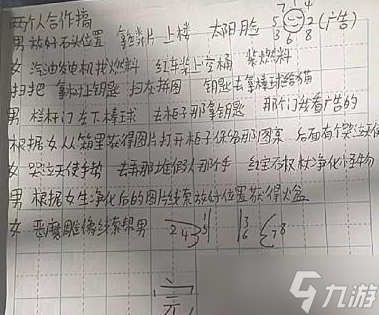 两个人合作搞
男 放好石头位置 拿靠片 上楼 太阳脸 5 7 1 4 3 6 8 2 (广告)
女 汽油发电机找燃料 红车装上空桶 装燃料
扫把 拿 钥匙 扫灰拼图 钥匙去拿棒球给猫
男 栏杆门左下棒球 去柜子那拿钥匙 那个门我看广告的
根据女从箱里获得图片打开柜子保险那图案 后面有个哭泣天使
女 哭泣天使手势 去弄那堆假人那个手 红宝石权杖净化小怪物
男 根据女生净化后的图片线索放好位置获得火盆
女 恶魔雕像线索帮男 2 4 5 1 3 6 7 8
九游